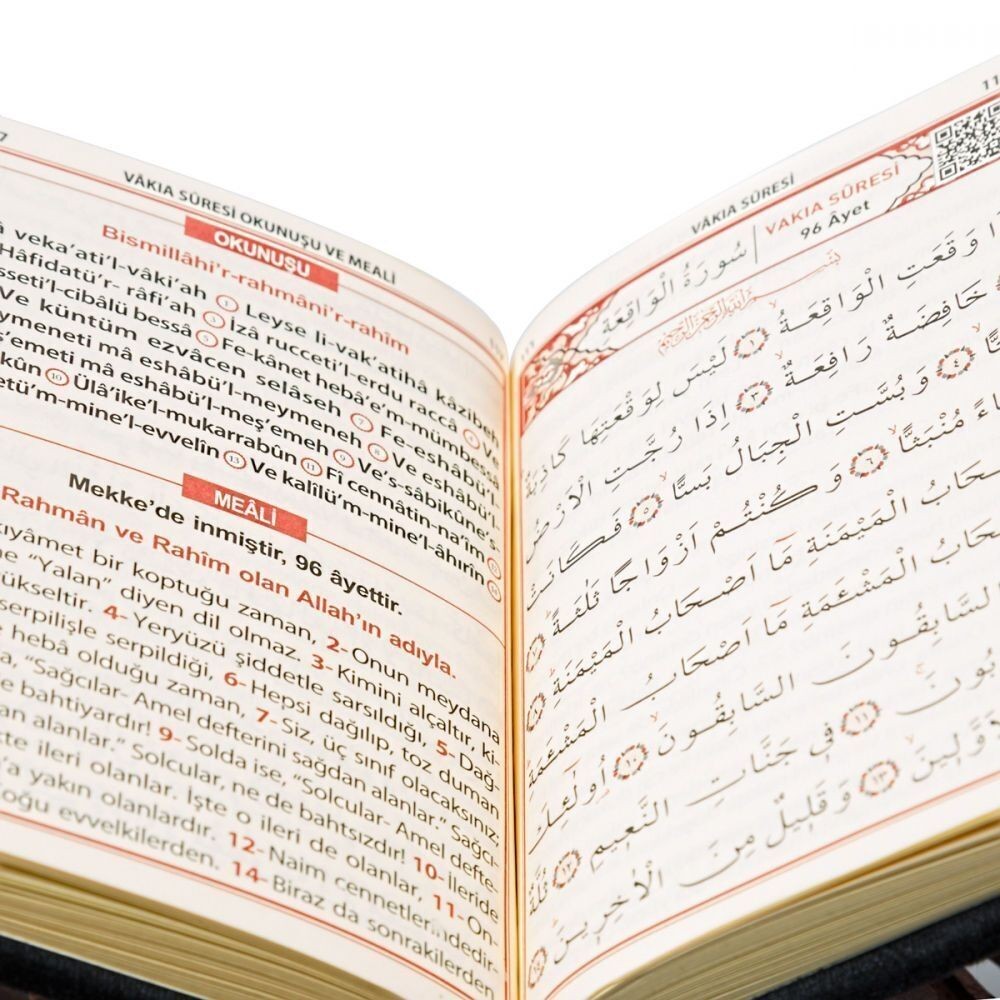 VÂKIA SÛRESİ OKUNUŞU VE MEALİ
OKUNUŞU
Bismillâhi'r-rahmâni'r-rahîm
veka'ati'l-vâki'ah 1 Leyse li-vak'atihâ kâzibeh
Hâfidatü'r- râfi'ah 3 İzâ rucceti'l-erdu raccâ 4 Ve
sseti'l-cibâlü bessâ 5 Fe-kânet hebâ'e'm-mümbessâ
Ve küntüm ezvâcen selâseh 7 Fe-eshâbü'l-
ymeneti mâ eshâbü'l-meymeneh 8 Ve eshâbü'l-
ş'emeti mâ eshâbü'l-meş'emeh 9 Ve's-sâbikûne's-
kûn 10 Ülâ'ike'l-mukarrabûn 11 Fî cennâtin-na'îm 12
etü'm-mine'l-evvelîn 13 Ve kalîlü'm-mine'l-âhırîn 14
MEÂLİ
Mekke'de inmiştir, 96 âyettir.
Rahmân ve Rahîm olan Allah'ın adıyla.
kıyâmet bir koptuğu zaman, 2- Onun meydana
ne "Yalan" diyen dil olmaz. 3- Kimini alçaltır, ki-
yükseltir. 4- Yeryüzü şiddetle sarsıldığı, 5- Dağ-
serpilişle serpildiği, 6- Hepsi dağılıp, toz duman
e hebâ olduğu zaman, 7- Siz, üç sınıf olacaksınız;
a, "Sağcılar- Amel defterini sağdan alanlar." Sağcı-
e bahtiyardır! 9- Solda ise, "Solcular- Amel defte-
an alanlar." Solcular, ne de bahtsızdır! 10- İleride
te ileri olanlar. İşte o ileri de olanlar, 11- On-
'a yakın olanlardır. 12- Naim cennetlerindedir-
Çoğu evvelkilerden. 14- Biraz da sonrakilerden
VÂKIA SÛRESİ
سُورَةُ الْوَاقِعَةِ
VAKIA SÛRESİ
96 Âyet
وَقَعَتِ الْوَاقِعَةُ ١ لَيْسَ لِوَقْعَتِهَا كَاذِبَةٌ
خَافِضَةٌ رَافِعَةٌ ٣ اِذَا رُجَّتِ الْاَرْضُ
٤ وَبُسَّتِ الْجِبَالُ بَسًّا ٥ فَكَانَتْ
مُنْبَثًّا ٦ وَكُنْتُمْ اَزْوَاجًا ثَلٰثَةً ٧
الْمَيْمَنَةِ مَٓا اَصْحَابُ الْمَيْمَنَةِ ٨
الْمَشْـَٔمَةِ مَٓا اَصْحَابُ الْمَشْـَٔمَةِ
السَّابِقُونَ السَّابِقُونَ ١٠ اُولٰٓئِكَ
١١ فِي جَنَّاتِ النَّعِيمِ ١٢ ثُلَّةٌ
١٣ وَقَلِيلٌ مِنَ الْاٰخِرِينَ ١٤